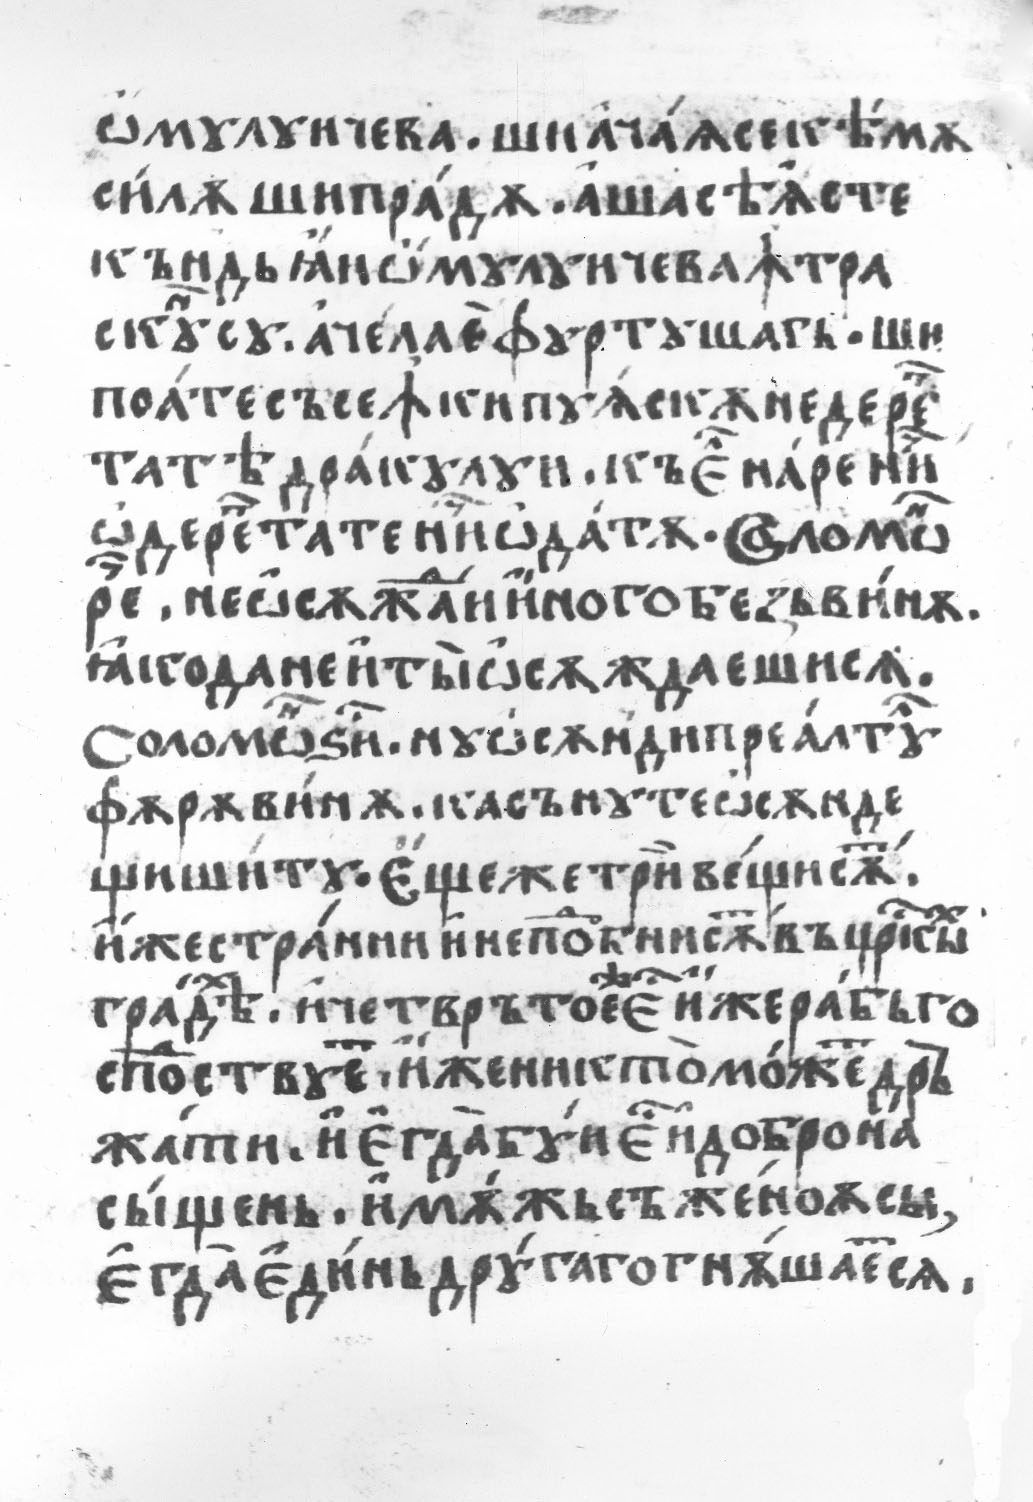 ѡ҆мꙋлꙋи чева . ши ача́ѧ се к҄ѣ́мѫ
си́лѫ ши пра́дѫ . а҆ша сѣ ѧ҆сте
къндь ꙗ҆и ѡ҆мꙋлꙋи чева ꙟ тра
скꙋ̑сꙋ . а҆чела є҆ фꙋртꙋшагь . ши
поа́те съ се ꙟкипꙋѧ́скѫ недере̑
татѣ дра́кꙋлꙋи . къ є҆ на́ре ни̑
ѡ҆дере̑тате ни̑ ѡ҆да́тѫ . Соломѡ̑
ре̑ . не ѡ҆сѫжⷣа́и и҆ного без вⸯи́нѫ .
ꙗ҆ко да не и҆ ты̀ ѡ҆сѫждаеши сѧ .
Соломѡ̑ ѕи̑ . нꙋ ѡ҆сѫнди пре а́лтꙋ̑
фѫрѫ ви́нѫ . ка съ нꙋ те ѡ҆сѫнде
щи ши тꙋ . Є҆ще же три̑ ве́щи сѫ̑ .
и҆же стра́нни и҆ непоⷣбни сѫ̑ въ цр҃їскы̑
граⷣдѣ̑ . и҆ четврътое̑ є҆ и҆же ра́бь го
споⷣствꙋе̑ , и҆же никто̀ мо́же̑ дръ̀
жа́ти . и҆ є҆гда̀ бꙋ́и є҆ и҆ добро на
сы́щень . и҆ мѫ́жь съ жено́ѫ сы,
є҆гда̀ є҆ди́нь дрꙋ́гаго гнѫ́шае̑ сѧ .